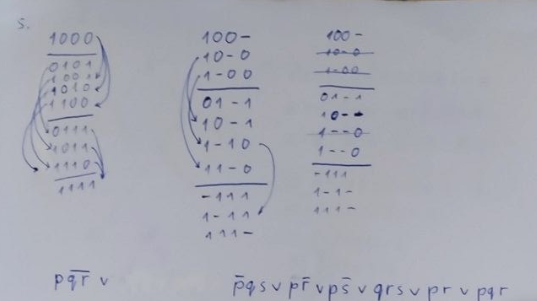 5.
1000
0101
1001
1010
1100
0111
1011
1110
1111
100-
10-0
1-00
01-1
10-1
1-10
11-0
-111
1-11
111-
100-
10-0
1-00
01--1
1--0
1--0
-111
1-1-
111-
pq̅r̅ v
p̅qs v pr̅ v ps̅ v qrs v pr v pqr